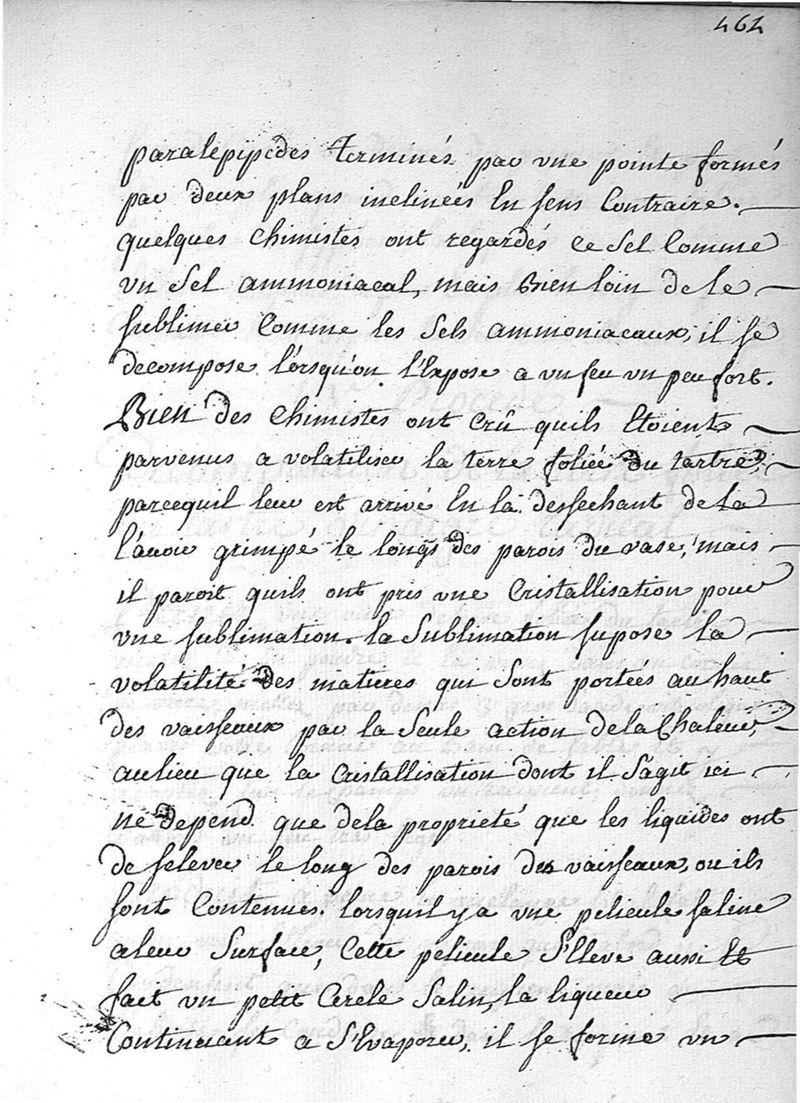 464
paralepipedes terminés par une pointe formés
par deux plans inclinées En sens Contraire.
quelques chimistes ont regardés ce Sel Comme
un Sel ammoniacal, mais Bien loin de le
sublimer Comme les Sels ammoniacaux, il se
decompose lorsqu'on l'Expose a un feu un peu fort.
Bien des chimistes ont crû quils Etoient
parvenus a volatiliser la terre foliée du tartre,
parcequil leur est arrivé En la dessechant de la
l'avoir grimpé le longs des parois du vase, mais
il paroit quils ont pris une Cristallisation pour
une sublimation. la Sublimation supose la
volatilité des matieres qui Sont portées au haut
des vaisseaux par la Seule action de la Chaleur,
aulieu que la Cristallisation dont il S'agit ici
ne depend que dela proprieté que les liquides ont
de selever le long des parois des vaisseaux, ou ils
sont Contenues. lorsquil y a une pelicule saline
aleur Surface, Cette pelicule S'Eleve aussi Et
fait un petit Cercle Salin, la liqueur
Continuant a S'Evaporer, il se forme un